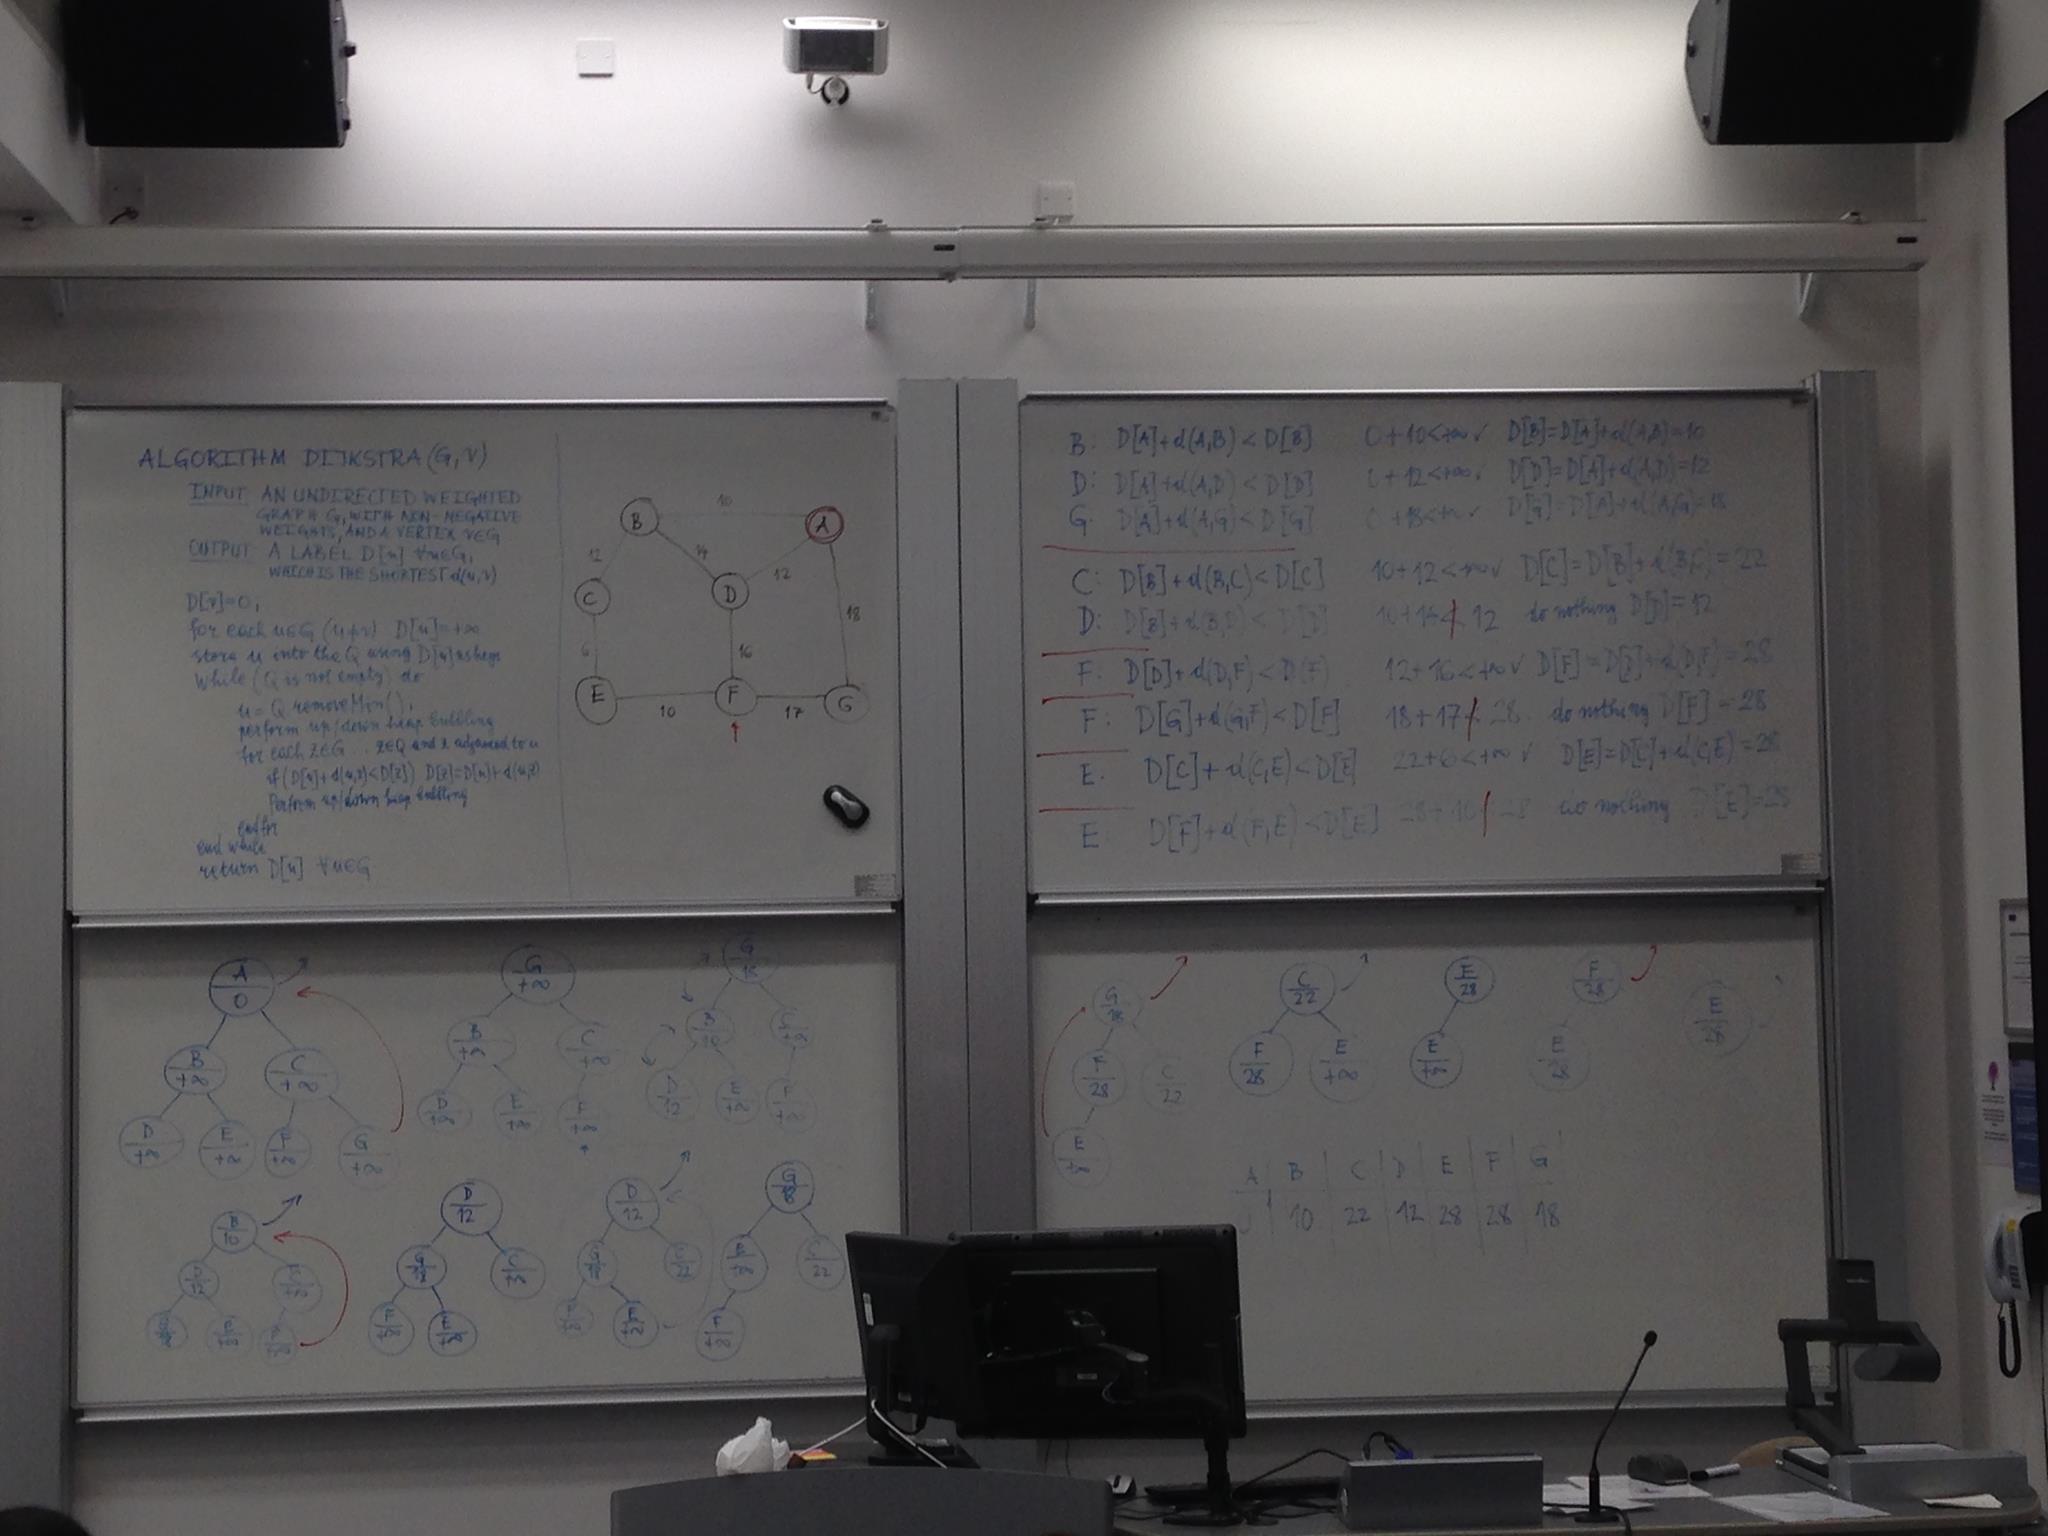 ALGORITHM DIJKSTRA (G, V)
INPUT: AN UNDIRECTED WEIGHTED
GRAPH G, WITH NON-NEGATIVE
WEIGHTS, AND A VERTEX V∈G
OUTPUT: A LABEL D[u] ∀u∈G,
WHICH IS THE SHORTEST d(u,v)
D[v]=0;
for each u∈G (u≠v) D[u]=+∞
store u into the Q using D[u] as keys
while (Q is not empty) do
u = Q.removeMin();
perform up/down heap bubbling
for each z∈G z∈Q and z adjacent to u
if (D[u]+d(u,z)<D[z]) D[z]=D[u]+d(u,z)
Perform up/down heap bubbling
end for
end while
return D[u] ∀u∈G
B 10 A
12 14 12
C D 18
6 16
E 10 F 17 G
B: D[A]+d(A,B) < D[B] 0+10<+∞ ✓ D[B]=D[A]+d(A,B)=10
D: D[A]+d(A,D) < D[D] 0+12<+∞ ✓ D[D]=D[A]+d(A,D)=12
G: D[A]+d(A,G) < D[G] 0+18<+∞ ✓ D[G]=D[A]+d(A,G)=18
C: D[B]+d(B,C) < D[C] 10+12<+∞ ✓ D[C]=D[B]+d(B,C)=22
D: D[B]+d(B,D) < D[D] 10+14≮12 do nothing D[D]=12
F: D[D]+d(D,F) < D(F) 12+16<+∞ ✓ D[F]=D[D]+d(D,F)=28
F: D[G]+d(G,F) < D[F] 18+17≮28 do nothing D[F]=28
E: D[C]+d(C,E) < D[E] 22+6<+∞ ✓ D[E]=D[C]+d(C,E)=28
E: D[F]+d(F,E) < D[E] 28+10≮28 do nothing D[E]=28
A 0
B +∞ C +∞
D +∞ E +∞ F +∞ G +∞
G +∞
B +∞ C +∞
D +∞ E +∞ F +∞
G 18
B 10 C +∞
D 12 E +∞ F +∞
B 10
D 12 C +∞
D 12
G 18 C +∞
F +∞ E +∞
D 12
C 22
G 18
C 22
F +∞
G 18
F 28 C 22
E +∞
C 22
F 28 E +∞
E 28
E +∞
F 28
E 28
E 28
A B C D E F G
10 22 12 28 28 18